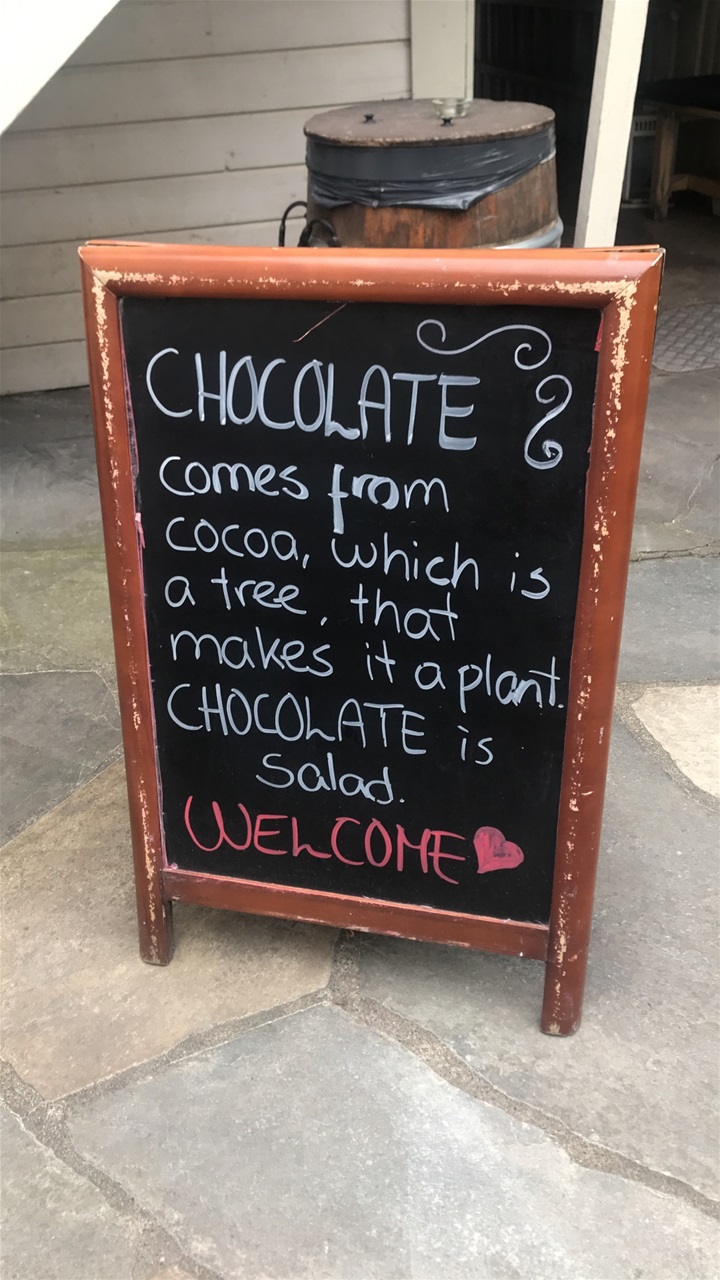 CHOCOLATE
comes from
cocoa, which is
a tree, that
makes it a plant.
CHOCOLATE is
salad.
WELCOME